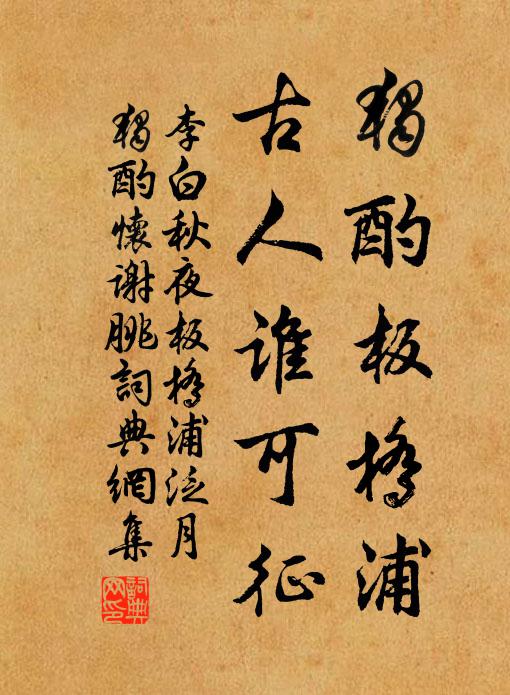 獨酌板橋浦
古人誰可征
李白秋夜板橋浦泛月
獨酌懷謝脁詞典網集
詞典網印